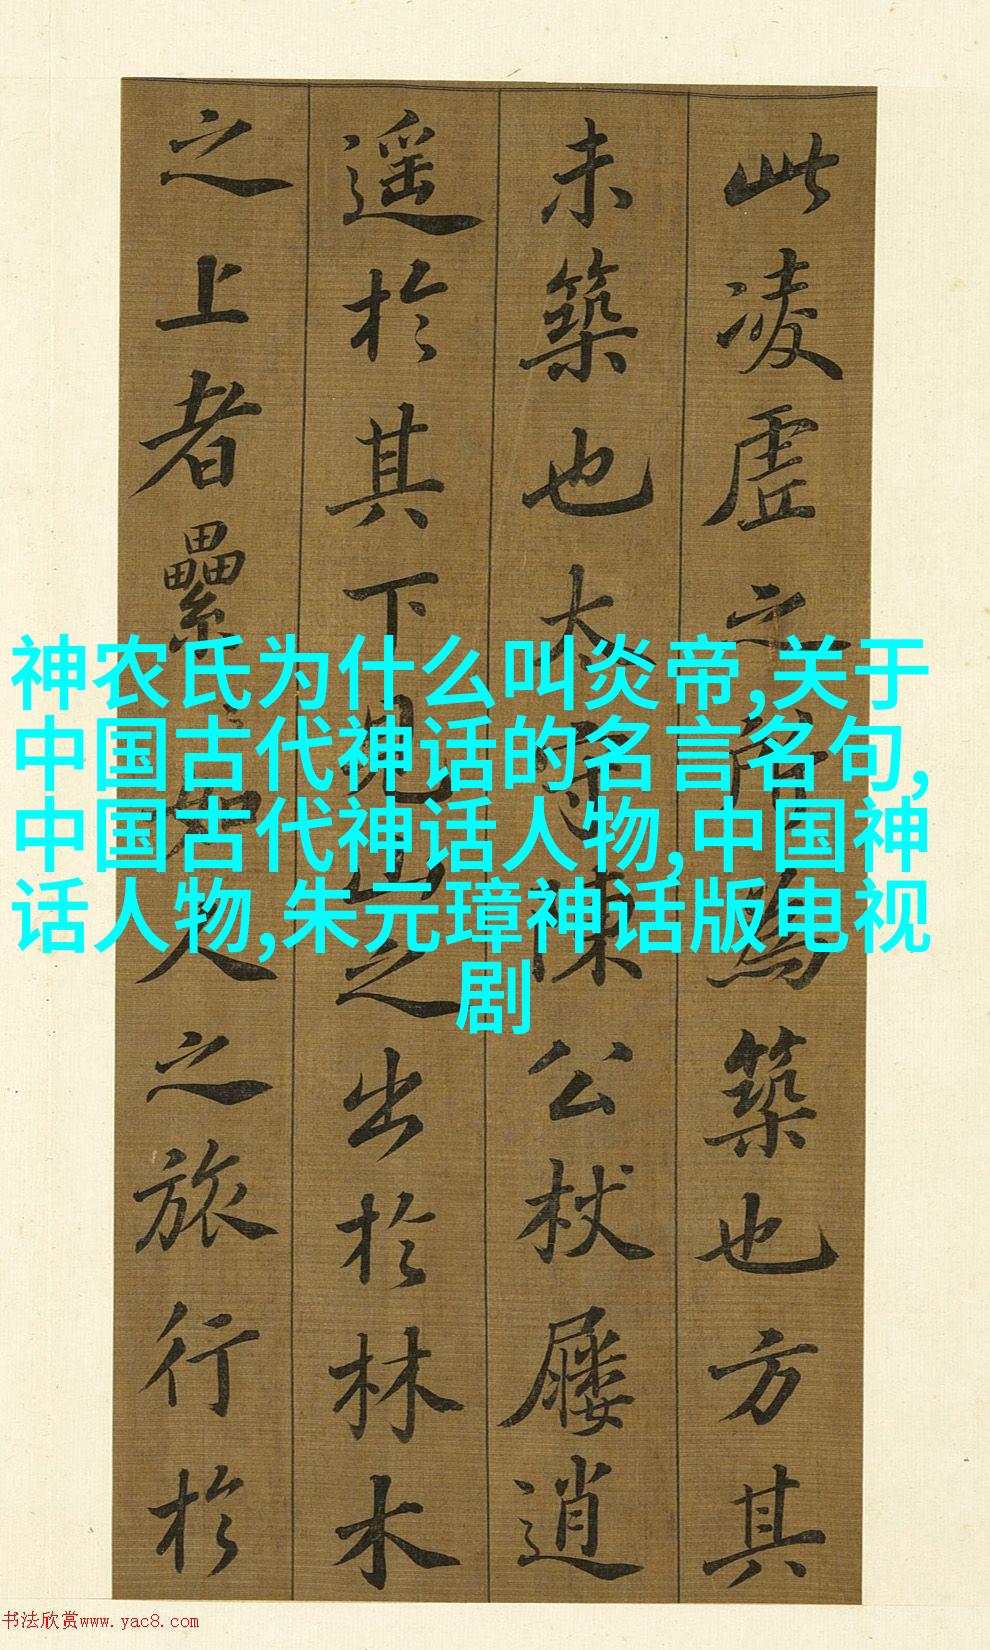 此凌虛之所為築也方其
未築也太守陳公杖屨逍
遥於其下見山之出於林木
之上者纍〻如人之旅行於
神农氏为什么叫炎帝,关于
中国古代神话的名言名句,
中国古代神话人物,中国神
话人物,朱元璋神话版电视
剧
书法欣赏www.yac8.com